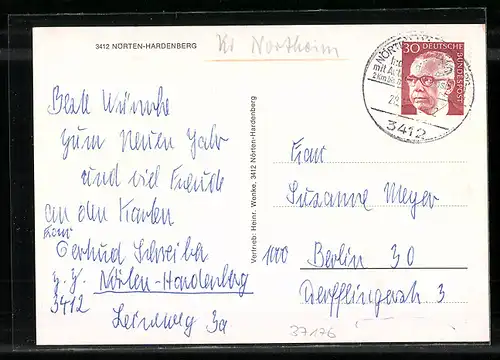 3412 NÖRTEN-HARDENBERG
Kr Northeim
Beste Wünsche
zum Neuen Jahr
und viel Freude
an den Karten
Gertrud Schreiber
z. Z. Nörten-Hardenberg
3412
3a
Vertrieb: Heinr. Wenke, 3412 Nörten-Hardenberg
30 DEUTSCHE
BUNDESPOST
3412
Frau
Susanne Meyer
1000 Berlin 30
Derfflingerstr 3
37176